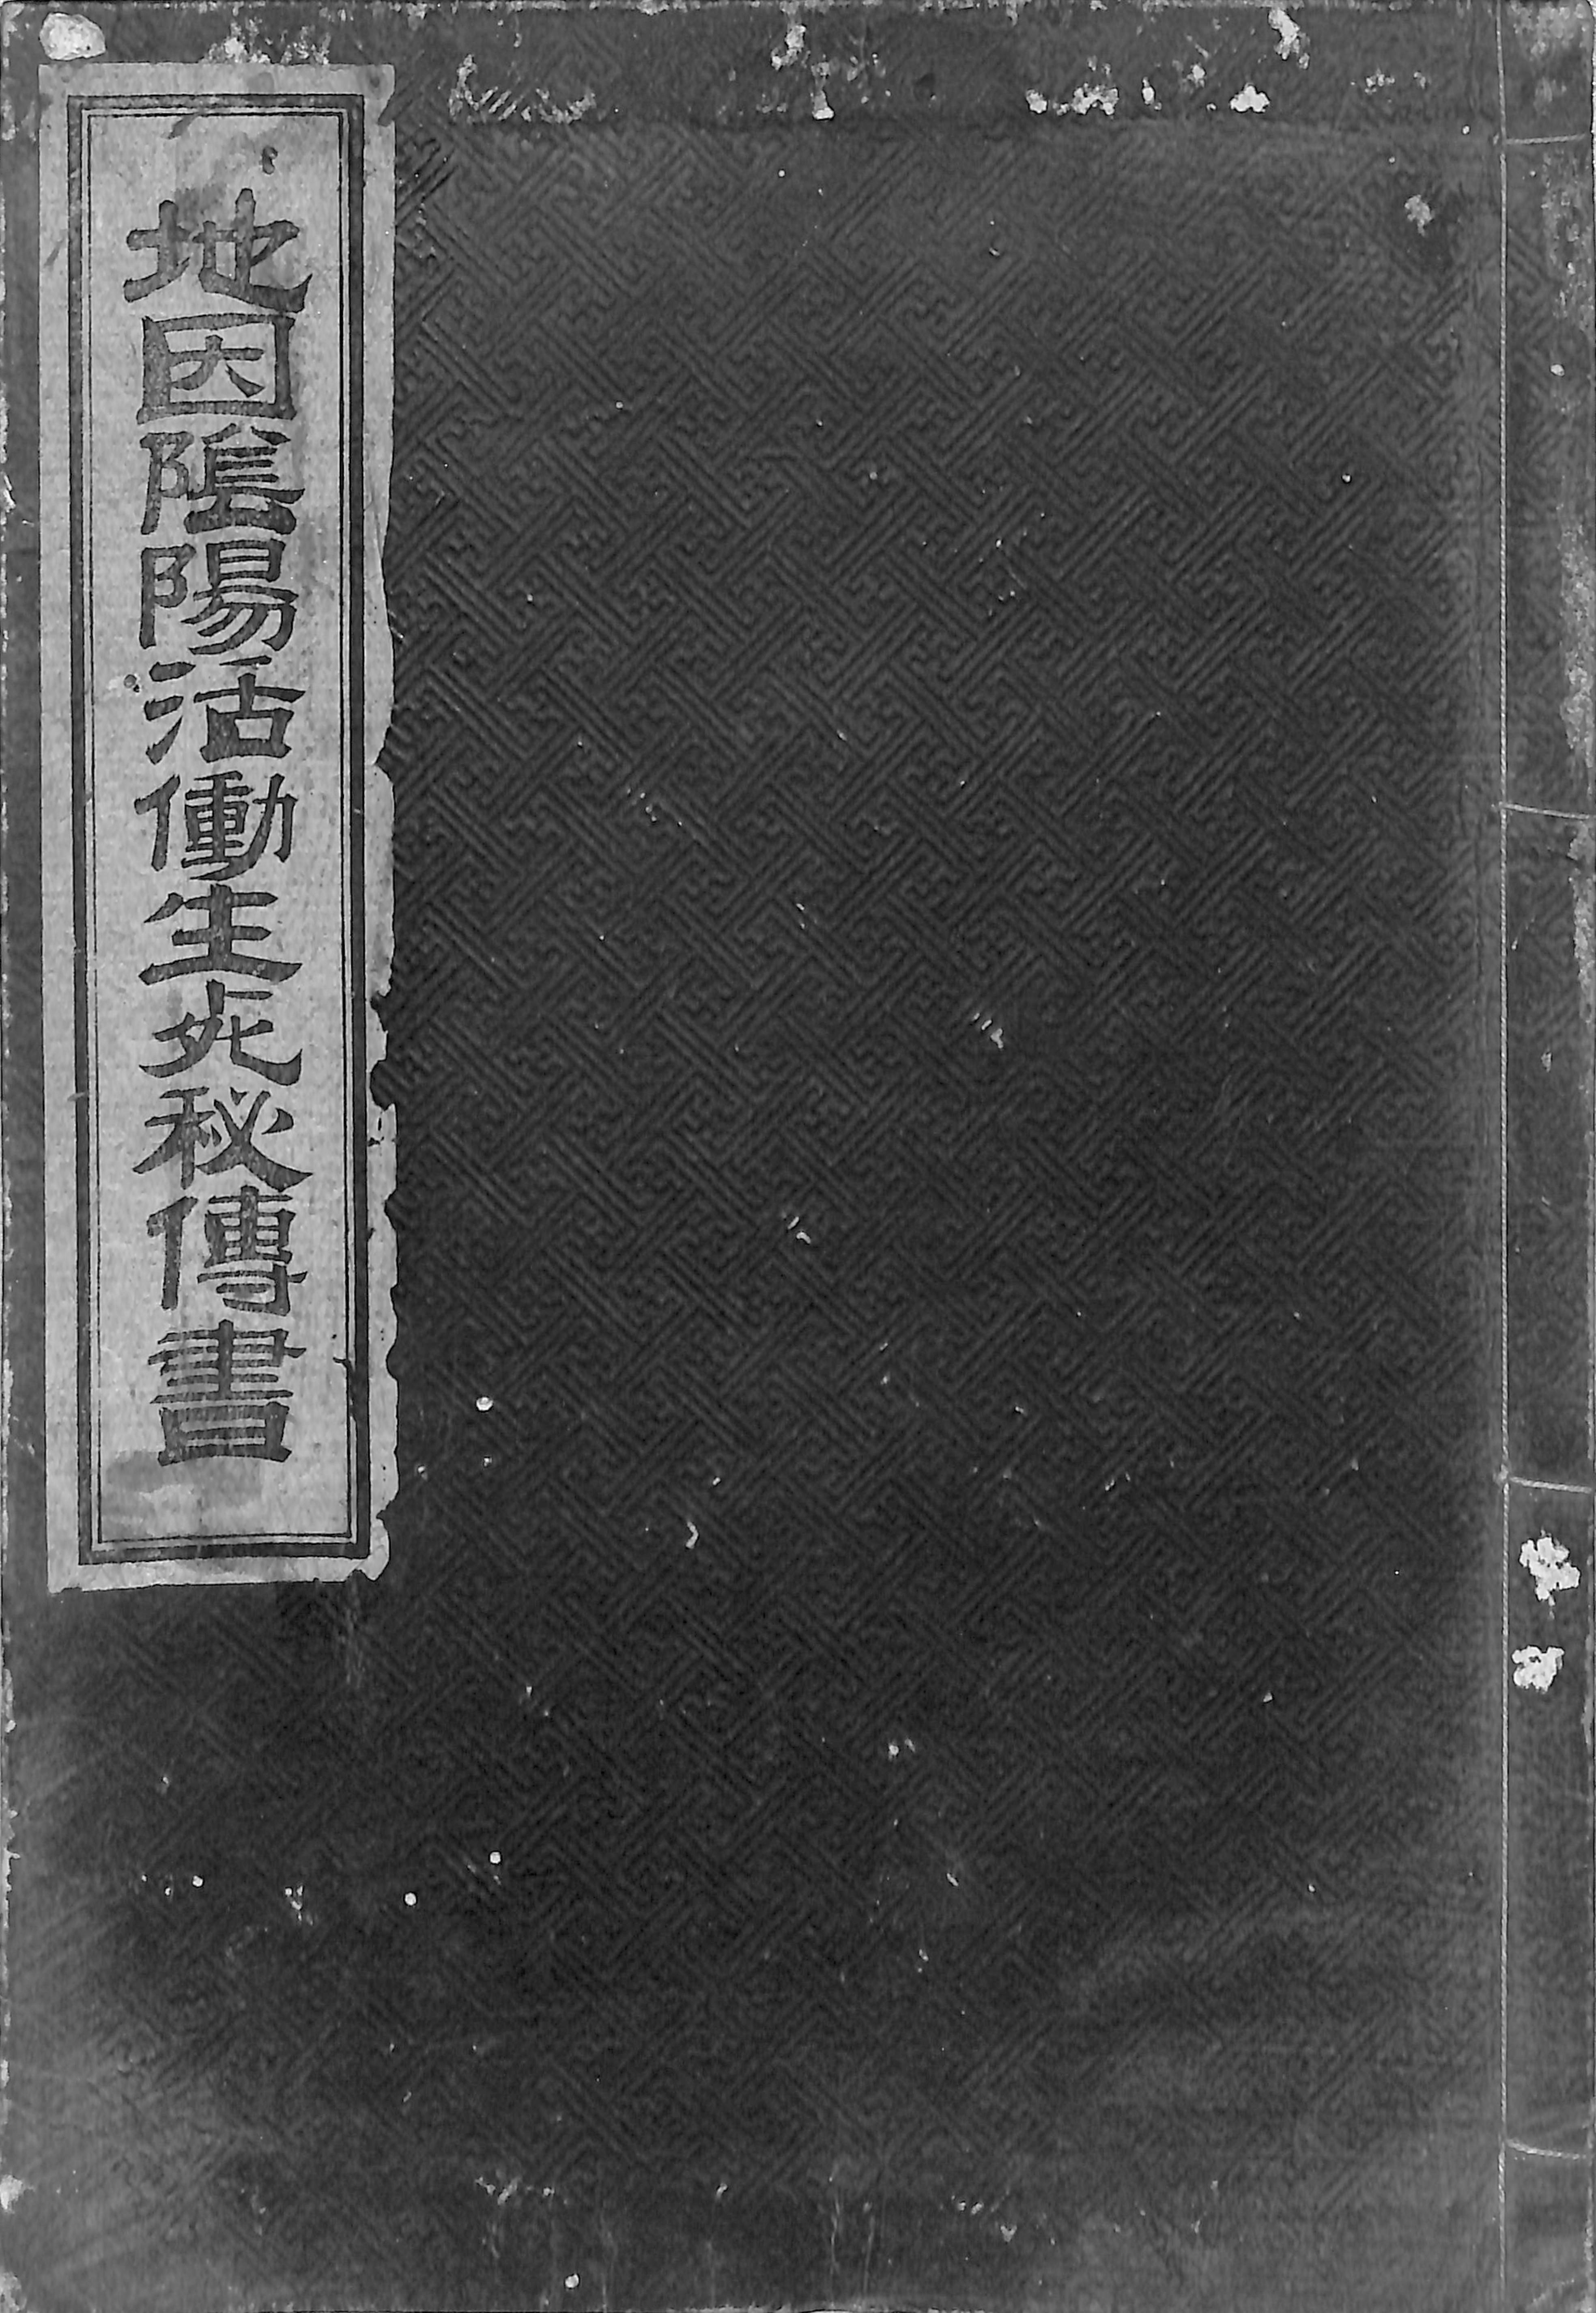 地因陰陽活働生死秘傳書